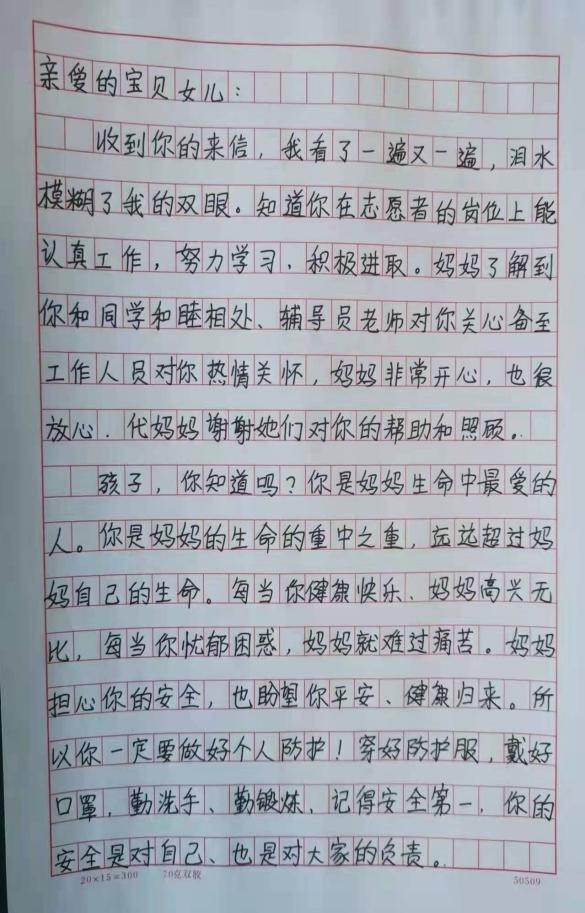 亲爱的宝贝女儿:
收到你的来信,我看了一遍又一遍,泪水
模糊了我的双眼。知道你在志愿者的岗位上能
认真工作,努力学习、积极进取。妈妈了解到
你和同学和睦相处、辅导员老师对你关心备至
工作人员对你热情关怀,妈妈非常开心,也很
放心.代妈妈谢谢她们对你的帮助和照顾。
孩子,你知道吗?你是妈妈生命中最爱的
人。你是妈妈的生命的重中之重,远远超过妈
妈自己的生命。每当你健康快乐、妈妈高兴无
比,每当你忧郁困惑,妈妈就难过痛苦。妈妈
担心你的安全,也盼望你平安、健康归来。所
以你一定要做好个人防护!穿好防护服,戴好
口罩,勤洗手、勤锻炼、记得安全第一.你的
安全是对自己、也是对大家的负责。
20×15=300 70克双胶 50509